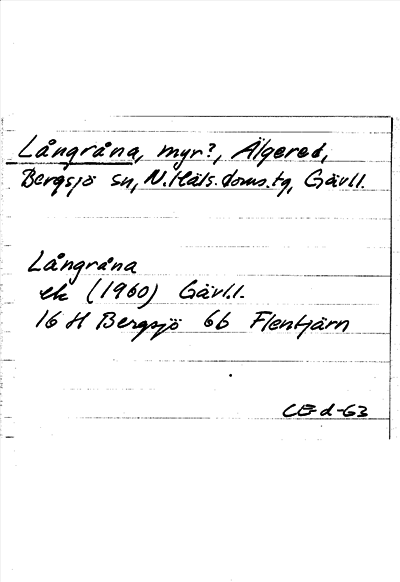 Långråna, myr?, Älgered,
Bergsjö sn, N. Häls. doms. tg, Gävl.l.
Långråna
ek (1960) Gävl.l.
16 H Bergsjö 6b Flentjärn
CE d-63